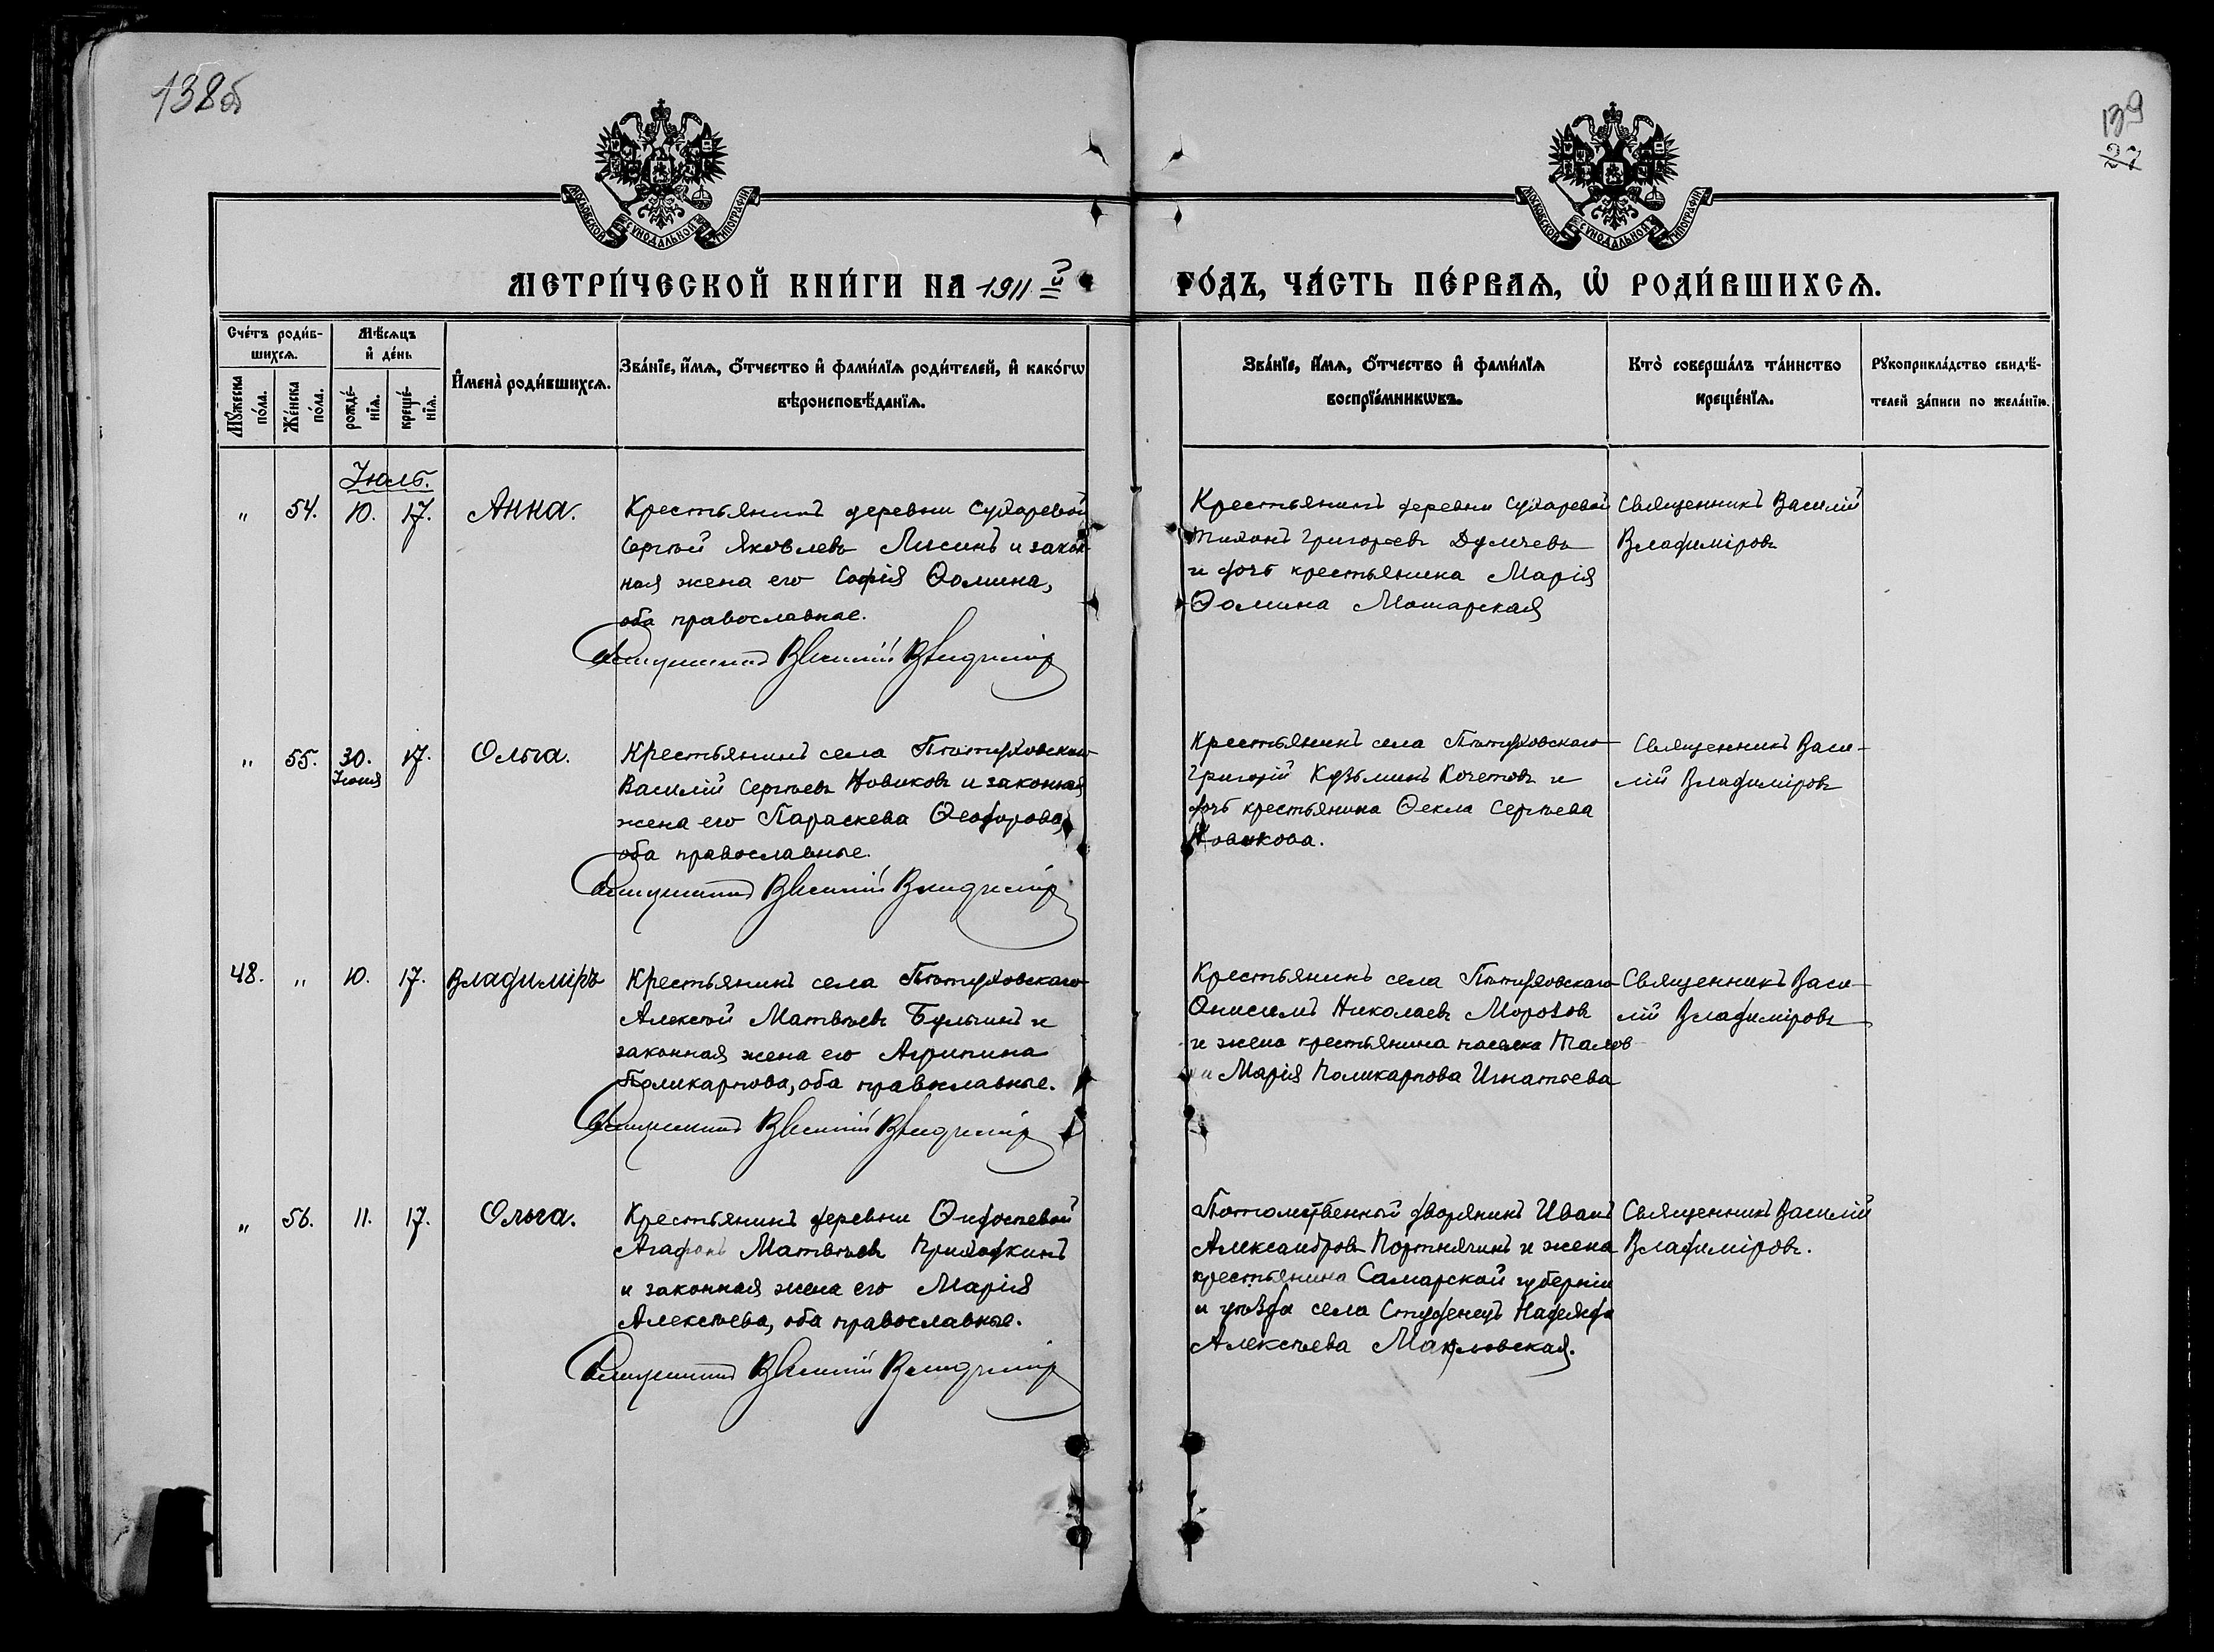 138об
139
27
МОСКОВСКОЙ СѴНОДАЛЬНОЙ ТИПОГРАФІИ
МОСКОВСКОЙ СѴНОДАЛЬНОЙ ТИПОГРАФІИ
МЕТРИ́ЧЕСКОЙ КНИ́ГИ НА 1911й
ГО́ДЪ, ЧА́СТЬ ПЕ́РВАѦ, Ѡ҆ РОДИ́ВШИХСѦ.
Сче́тъ роди́в-
шихсѧ.
Мꙋ́жеска по́ла.
Же́нска по́ла.
Мѣ́сѧцъ
и҆ де́нь
рожде́-
нїѧ.
креще́-
нїѧ.
И҆мена̀ роди́вшихсѧ.
Зва́нїе, и҆́мѧ, ѻ҆́тчество и҆ фами́лїѧ роди́телей, и҆ како́гѡ
вѣроисповѣ́данїѧ.
Зва́нїе, и҆́мѧ, ѻ҆́тчество и҆ фами́лїѧ
воспрїе́мникѡвъ.
Кто̀ соверша́лъ та́инство
креще́нїѧ.
Рꙋкоприкла́дство свидѣ́-
телей за́писи по жела́нїю.
Іюль.
" 54. 10. 17. Анна.
Крестьянинъ деревни Сухаревой
Сергѣй Яковлевъ Лисинъ и закон-
ная жена его Софія Ѳомина,
оба православные.
Священникъ Василій Владиміровъ
Крестьянинъ деревни Сухаревой
Тихонъ Григорьевъ
и дочь крестьянина Марія
Ѳомина
Священникъ Василій
Владиміровъ
" 55. 30. 17. Ольга.
Іюня
Крестьянинъ села Пѣтуховскаго
Василій Сергѣевъ Новиковъ и законная
жена его Параскева Ѳеодорова,
оба православные.
Священникъ Василій Владиміровъ
Крестьянинъ села Пѣтуховскаго
Григорій Кузьминъ Кочетовъ и
дочь крестьянина Ѳекла Сергѣева
Новикова.
Священникъ Васи-
лій Владиміровъ
48. " 10. 17. Владиміръ
Крестьянинъ села Пѣтуховскаго
Алексѣй Матвѣевъ Булыгинъ и
законная жена его Агрипина
Поликарпова, оба православные.
Священникъ Василій Владиміровъ
Крестьянинъ села Пѣтуховскаго
Онисимъ Николаевъ Морозовъ
и жена крестьянина
Марія Поликарпова Игнатьева
Священникъ Васи-
лій Владиміровъ
" 56. 11. 17. Ольга.
Крестьянинъ деревни
Агафонъ Матвѣевъ Приходкинъ
и законная жена его Марія
Алексѣева, оба православные.
Священникъ Василій Владиміровъ
Потомственный дворянинъ Иванъ
Александровъ Портнягинъ и жена
крестьянина Самарской губерніи
и уѣзда села Студенецъ Надежда
Алексѣева
Священникъ Василій
Владиміровъ.